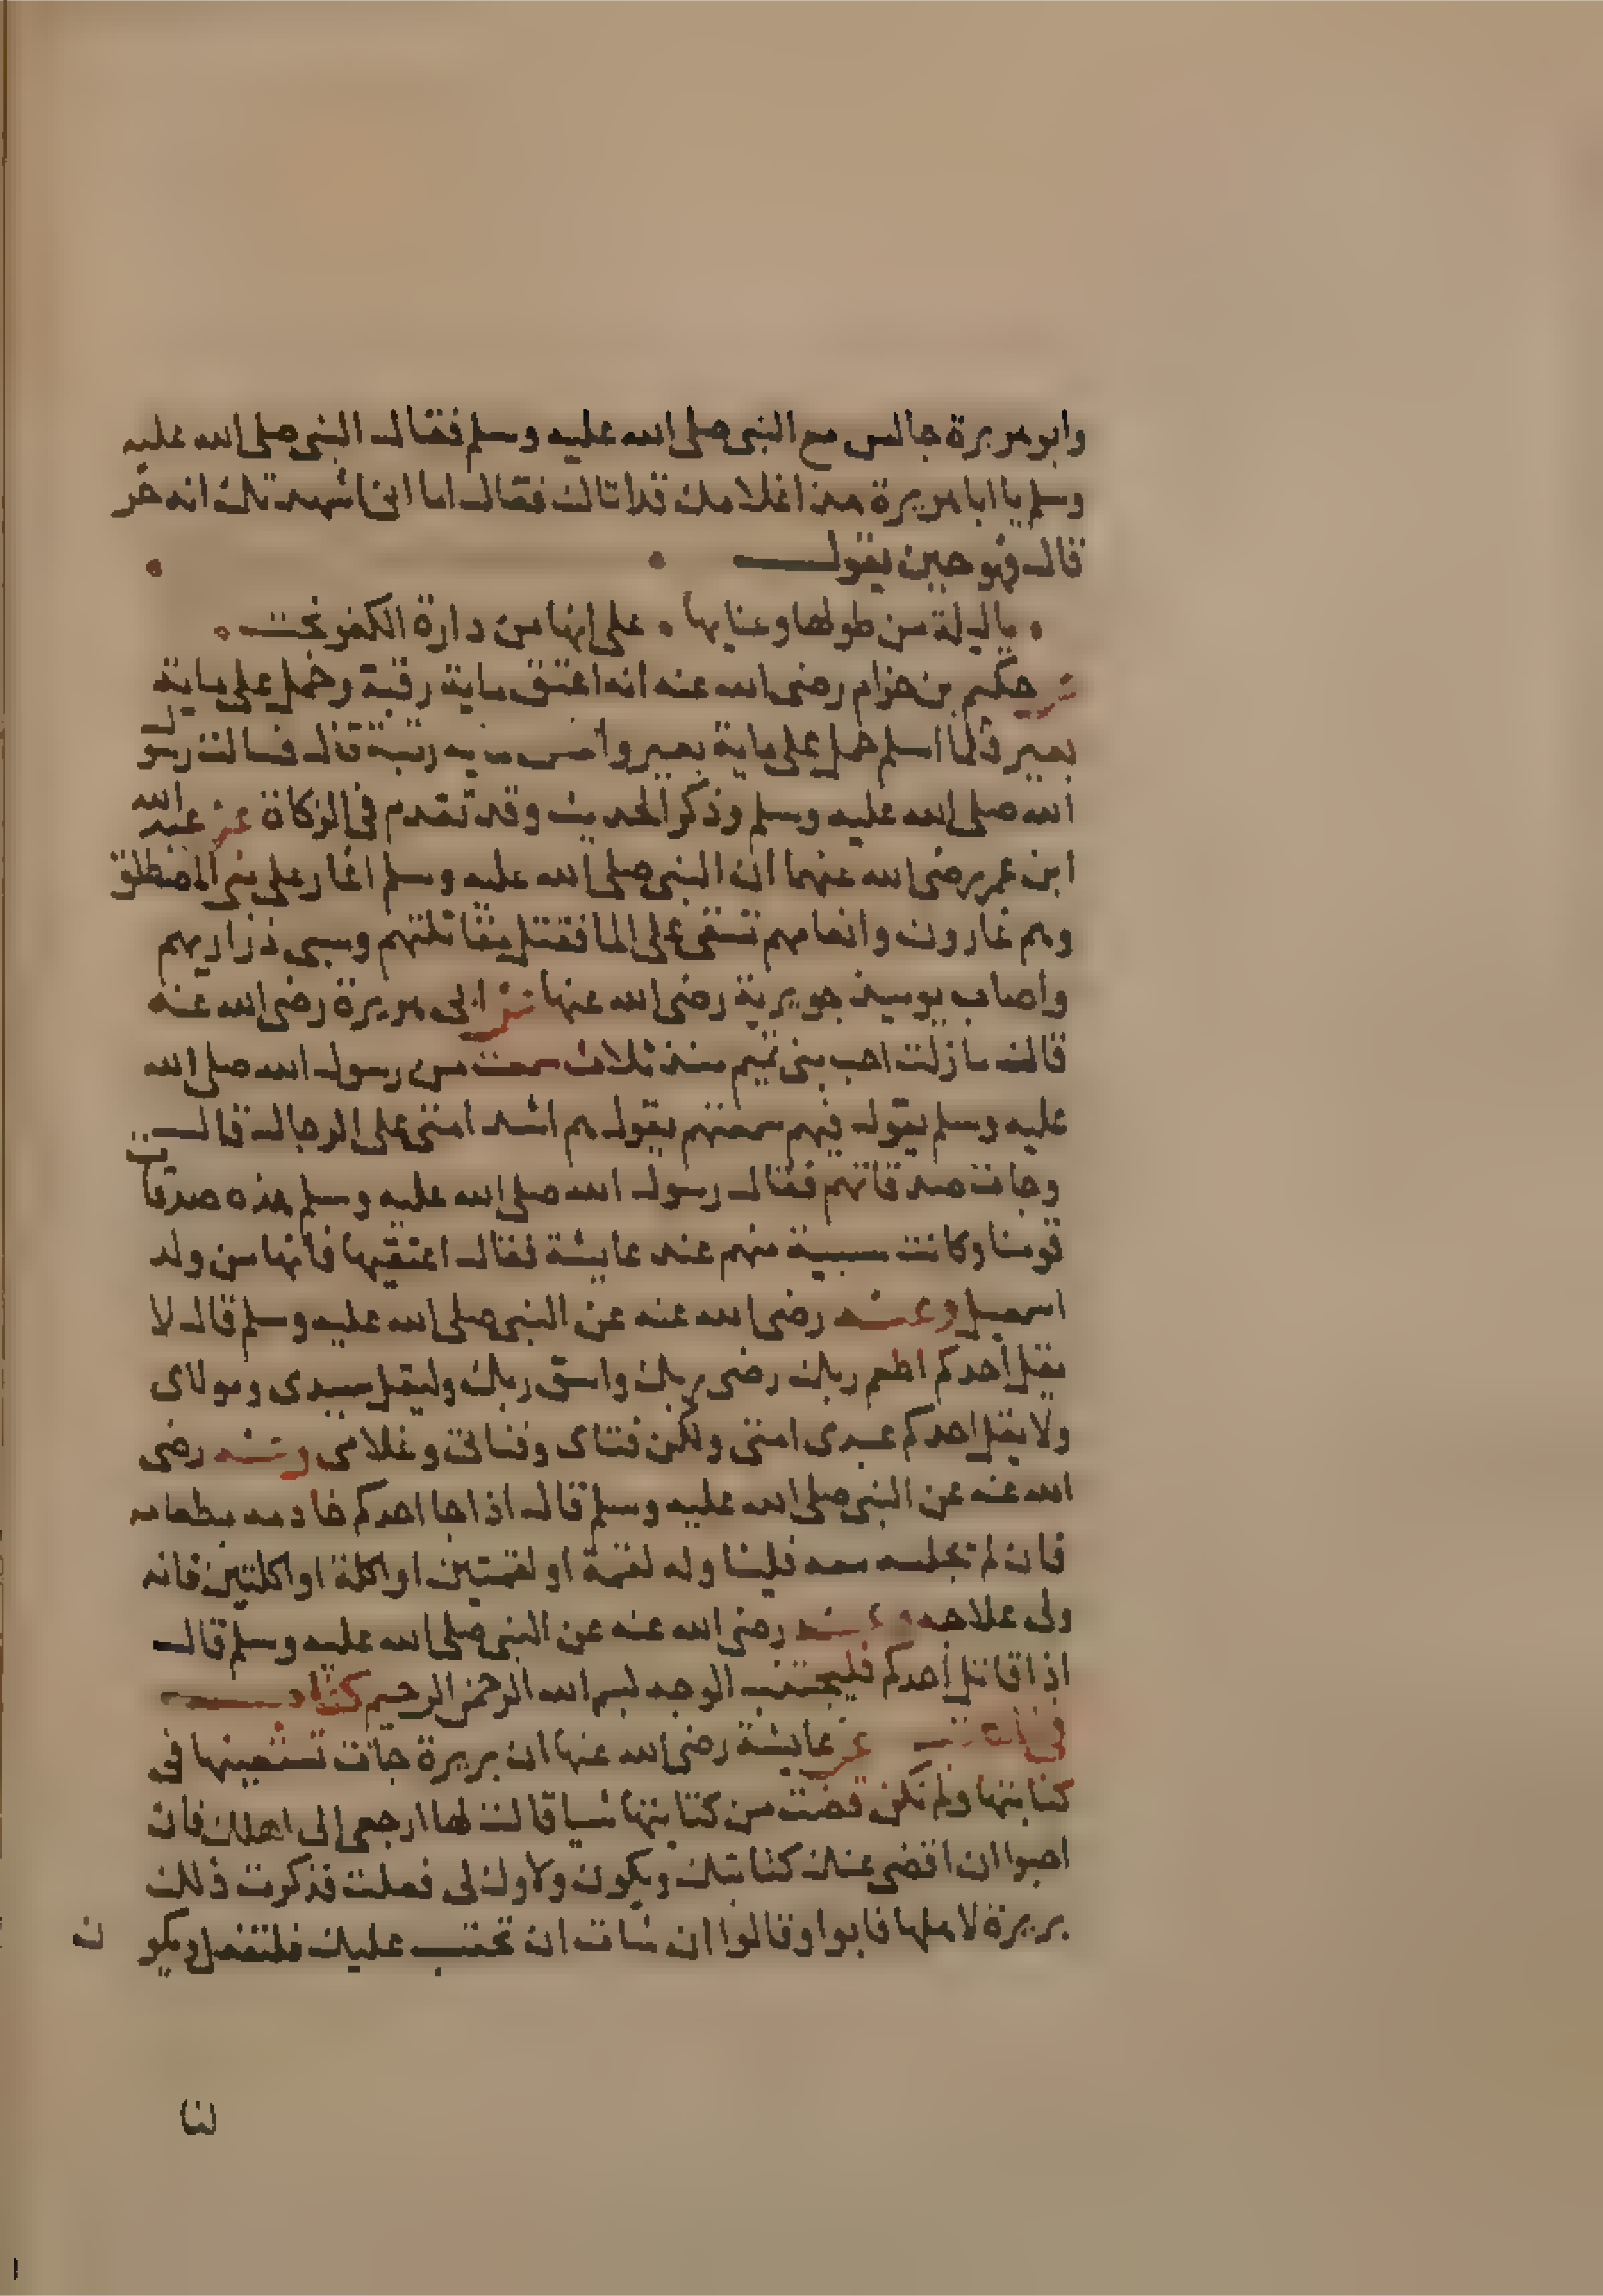 وابو هريرة جالس مع النبى صلى الله عليه وسلم فقال النبى صلى الله عليه
وسلم يا ابا هريرة هذا غلامك قد اتاك فقال اما انى اشهدك انه حر
قال فهو حين يقول
يا ليلة من طولها وعنايها على انها من دارة الكفر نجت
عن حكيم بن حزام رضى الله عنه انه اعتق ماية رقبة وحمل على ماية
بعير فلما اسلم حمل على ماية بعير واعتق ماية رقبة قال فسالت رسول
الله صلى الله عليه وسلم وذكر الحديث وقد تقدم فى الزكاة عن عبد الله
ابن عمر رضى الله عنهما ان النبى صلى الله عليه وسلم اغار على بنى المصطلق
وهم غارون وانعامهم تسقى على الما فقتل مقاتلتهم وسبى ذراريهم
واصاب يوميذ جويرية رضى الله عنها عن ابى هريرة رضى الله عنه
قالت ما زلت احب بنى تميم منذ ثلاث سمعت من رسول الله صلى الله
عليه وسلم يقول فيهم سمعتهم يقول هم اشد امتى على الدجال قال
وجات صدقاتهم فقال رسول الله صلى الله عليه وسلم هذه صدقات
قومنا وكانت سبية منهم عند عايشة فقال اعتقيها فانها من ولد
اسمعيل وعنه رضى الله عنه عن النبى صلى الله عليه وسلم قال لا
يقل احدكم اطعم ربك وضى ربك واسق ربك وليقل سيدى ومولاى
ولا يقل احدكم عبدى امتى ولكن فتاى وفتاتى وغلامى وعنه رضى
الله عنه عن النبى صلى الله عليه وسلم قال اذا جا احدكم خادمه بطعامه
فان لم تجلسه معه فليناوله لقمة او لقمتين او اكلة او اكلتين فانه
ولى علاجه وعنه رضى الله عنه عن النبى صلى الله عليه وسلم قال
اذا قاتل احدكم فليجتنب الوجه بسم الله الرحمن الرحيم كتاب
فى عن عايشة رضى الله عنها ان بريرة جات تستعينها فى
كتابتها ولم تكن قضت من كتابتها شيا قالت لها ارجعى الى اهلك فان
احبوا ان اقضى عنك كتابتك ويكون ولاوك لى فعلت فذكرت ذلك
بريرة لاهلها فابوا وقالوا ان شات ان تحتسب عليك فلتفعل ويكون
لنا